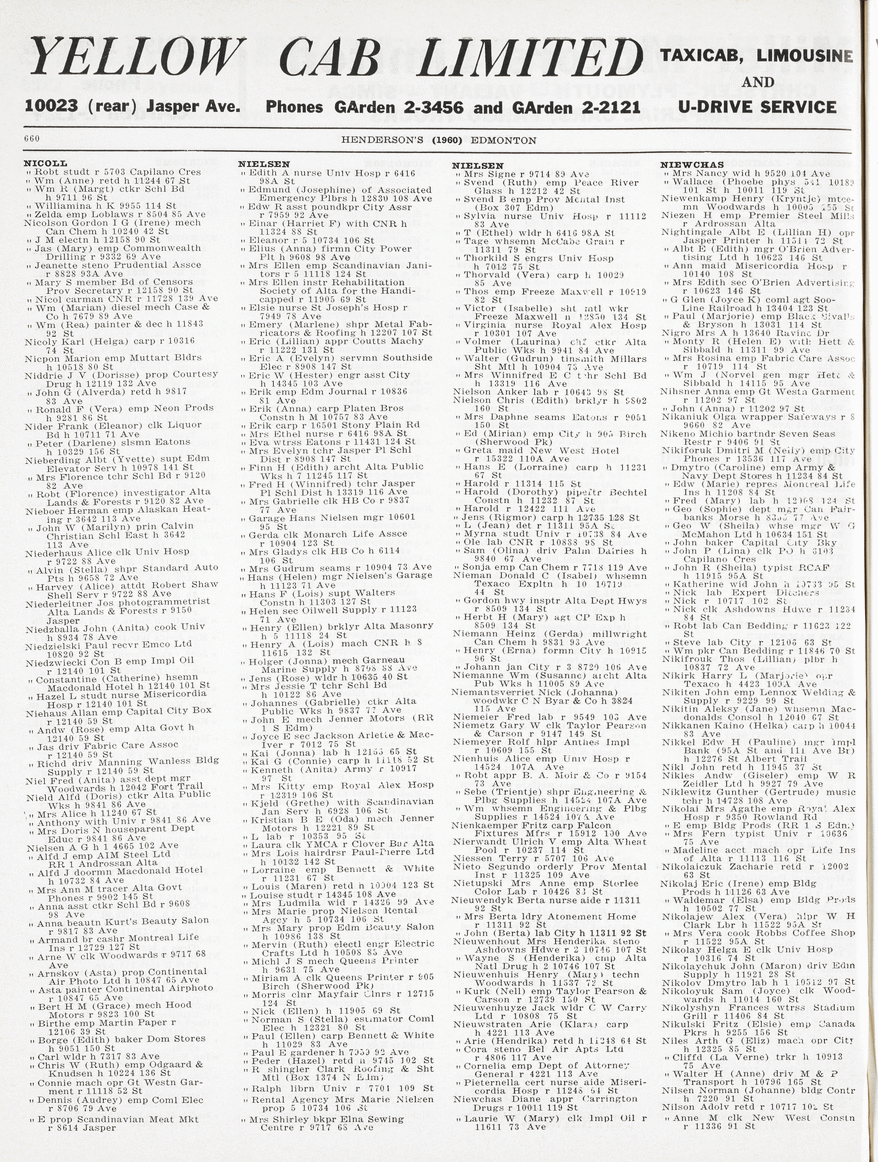 YELLOW CAB LIMITED
TAXICAB, LIMOUSINE
AND
U-DRIVE SERVICE
10023 (rear) Jasper Ave. Phones GArden 2-3456 and GArden 2-2121
660
HENDERSON'S (1960) EDMONTON
NICOLL
" Robt studt r 5703 Capilano Cres
" Wm (Anne) retd h 11244 67 St
" Wm R (Margt) ctkr Schl Bd
h 9711 96 St
" Williamina h K 9955 114 St
" Zelda emp Loblaws r 8504 85 Ave
Nicolson Gordon I G (Irene) mech
Can Chem h 10240 42 St
" J M electn h 12158 90 St
" Jas (Mary) emp Commonwealth
Drilling r 9332 69 Ave
" Jeanette steno Prudential Assce
r 8828 93A Ave
" Mary S member Bd of Censors
Prov Secretary r 12158 90 St
" Nicol carman CNR r 11728 139 Ave
" Wm (Marian) diesel mech Case &
Co h 7679 89 Ave
" Wm (Rea) painter & dec h 11843
92 St
Nicoly Karl (Helga) carp r 10316
74 St
Nicpon Marion emp Muttart Bldrs
h 10518 80 St
Niddrie J V (Dorisse) prop Courtesy
Drug h 12119 132 Ave
" John G (Alverda) retd h 9817
83 Ave
" Ronald F (Vera) emp Neon Prods
h 9281 86 St
Nider Frank (Eleanor) clk Liquor
Bd h 10711 71 Ave
" Peter (Darlene) slsmn Eatons
h 10329 156 St
Nieberding Albt (Yvette) supt Edm
Elevator Serv h 10978 141 St
" Mrs Florence tchr Schl Bd r 9120
82 Ave
" Robt (Florence) investigator Alta
Lands & Forests r 9120 82 Ave
Nieboer Herman emp Alaskan Heat-
ing r 3642 113 Ave
" John W (Marilyn) prin Calvin
Christian Schl East h 3642
113 Ave
Niederhaus Alice clk Univ Hosp
r 9722 88 Ave
" Alvin (Stella) shpr Standard Auto
Pts h 9658 72 Ave
" Harvey (Alice) attdt Robert Shaw
Shell Serv r 9722 88 Ave
Niederleitner Jos photogrammetrist
Alta Lands & Forests r 9150
Jasper
Niedzballa John (Anita) cook Univ
h 8934 78 Ave
Niedzielski Paul recvr Emco Ltd
10820 92 St
Niedzwiecki Con B emp Impl Oil
r 12140 101 St
" Constantine (Catherine) hsemn
Macdonald Hotel h 12140 101 St
" Hazel L studt nurse Misericordia
Hosp r 12140 101 St
Niehaus Allan emp Capital City Box
r 12140 59 St
" Andw (Rose) emp Alta Govt h
12140 59 St
" Jas driv Fabric Care Assoc
r 12140 59 St
" Richd driv Manning Wanless Bldg
Supply r 12140 59 St
Niel Fred (Anita) asst dept mgr
Woodwards h 12042 Fort Trail
Nield Alfd (Doris) ctkr Alta Public
Wks h 9841 86 Ave
" Mrs Alice h 11240 67 St
" Anthony with Univ r 9841 86 Ave
" Mrs Doris N houseparent Dept
Educ r 9841 86 Ave
Nielsen A G h 1 4665 102 Ave
" Alfd J emp AIM Steel Ltd
RR 1 Androssan Alta
" Alfd J doormn Macdonald Hotel
h 10732 84 Ave
" Mrs Ann M tracer Alta Govt
Phones r 9902 145 St
" Anna asst ctkr Schl Bd r 9608
98 Ave
" Anna beautn Kurt's Beauty Salon
r 9817 83 Ave
" Armand br cashr Montreal Life
Ins r 12729 127 St
" Arne W clk Woodwards r 9717 68
Ave
" Arnskov (Asta) prop Continental
Air Photo Ltd h 10847 65 Ave
" Asta painter Continental Airphoto
r 10847 65 Ave
" Bert H M (Grace) mech Hood
Motors r 9823 100 St
" Birthe emp Martin Paper r
12106 39 St
" Borge (Edith) baker Dom Stores
h 9051 150 St
" Carl wldr h 7317 83 Ave
" Chris W (Ruth) emp Odgaard &
Knudsen h 10224 136 St
" Connie mach opr Gt Westn Gar-
ment r 11118 52 St
" Dennis (Audrey) emp Coml Elec
r 8706 79 Ave
" E prop Scandinavian Meat Mkt
r 8614 Jasper
NIELSEN
" Edith A nurse Univ Hosp r 6416
98A St
" Edmund (Josephine) of Associated
Emergency Plbrs h 12830 108 Ave
" Edw R asst poundkpr City Assr
r 7959 92 Ave
" Einar (Harriet F) with CNR h
11324 88 St
" Eleanor r 5 10734 106 St
" Elius (Anna) firmn City Power
Plt h 9608 98 Ave
" Mrs Ellen emp Scandinavian Jani-
tors r 5 11118 124 St
" Mrs Ellen instr Rehabilitation
Society of Alta for the Handi-
capped r 11905 69 St
" Elsie nurse St Joseph's Hosp r
7949 78 Ave
" Emery (Marlene) shpr Metal Fab-
ricators & Roofing h 12207 107 St
" Eric (Lillian) appr Coutts Machy
r 11222 131 St
" Eric A (Evelyn) servmn Southside
Elec r 8908 147 St
" Eric W (Hester) engr asst City
h 14345 103 Ave
" Erik emp Edm Journal r 10836
81 Ave
" Erik (Anna) carp Platen Bros
Constn h M 10757 83 Ave
" Erik carp r 16501 Stony Plain Rd
" Mrs Ethel nurse r 6416 98A St
" Eva wtrss Eatons r 11431 124 St
" Mrs Evelyn tchr Jasper Pl Schl
Dist r 8908 147 St
" Finn H (Edith) archt Alta Public
Wks h 7 11245 117 St
" Fred H (Winnifred) tchr Jasper
Pl Schl Dist h 13319 116 Ave
" Mrs Gabrielle clk HB Co r 9837
77 Ave
" Garage Hans Nielsen mgr 10601
95 St
" Gerda clk Monarch Life Assce
r 10904 123 St
" Mrs Gladys clk HB Co h 6114
106 St
" Mrs Gudrum seams r 10904 73 Ave
" Hans (Helen) mgr Nielsen's Garage
h 11123 71 Ave
" Hans F (Lois) supt Walters
Constn h 11303 127 St
" Helen sec Oilwell Supply r 11123
71 Ave
" Henry (Ellen) brklyr Alta Masonry
h 5 11118 24 St
" Henry A (Lois) mach CNR h 8
11615 132 St
" Holger (Jonna) mech Garneau
Marine Supply h 8798 88 Ave
" Jens (Rose) wldr h 10635 40 St
" Mrs Jessie T tchr Schl Bd
h 10122 86 Ave
" Johannes (Gabrielle) ctkr Alta
Public Wks h 9837 77 Ave
" John E mech Jenner Motors (RR
1 S Edm)
" Joyce E sec Jackson Arlette & Mac-
Iver r 7012 75 St
" Kai (Jonna) lab h 12155 65 St
" Kai G (Connie) carp h 11118 52 St
" Kenneth (Anita) Army r 10917
97 St
" Mrs Kitty emp Royal Alex Hosp
r 12319 106 St
" Kjeld (Grethe) with Scandinavian
Jan Serv h 6928 106 St
" Kristian B E (Oda) mech Jenner
Motors h 12221 89 St
" L lab r 10353 95 St
" Laura clk YMCA r Clover Bar Alta
" Mrs Lois hairdrsr Paul-Pierre Ltd
h 10132 142 St
" Lorraine emp Bennett & White
r 11231 67 St
" Louis (Maren) retd h 10904 123 St
" Louise studt r 14345 108 Ave
" Mrs Ludmila wid r 14326 99 Ave
" Mrs Marie prop Nielsen Rental
Agcy h 5 10734 106 St
" Mrs Mary prop Edm Beauty Salon
h 10986 138 St
" Mervin (Ruth) electl engr Electric
Crafts Ltd h 10508 85 Ave
" Michl J S mech Queens Printer
h 9631 75 Ave
" Miriam A clk Queens Printer r 905
Birch (Sherwood Pk)
" Morris clnr Mayfair Clnrs r 12715
124 St
" Nick (Ellen) h 11905 69 St
" Norman S (Stella) estimator Coml
Elec h 12321 80 St
" Paul (Ellen) carp Bennett & White
h 11029 83 Ave
" Paul E gardener h 7959 92 Ave
" Peder (Hazel) retd h 9745 102 St
" R shingler Clark Roofing & Sht
Mtl (Box 1374 N Edm)
" Ralph librn Univ r 7701 109 St
" Rental Agency Mrs Marie Nielsen
prop 5 10734 106 St
" Mrs Shirley bkpr Elna Sewing
Centre r 9717 68 Ave
NIELSEN
" Mrs Signe r 9714 89 Ave
" Svend (Ruth) emp Peace River
Glass h 12212 42 St
" Svend B emp Prov Mental Inst
(Box 307 Edm)
" Sylvia nurse Univ Hosp r 11112
83 Ave
" T (Ethel) wldr h 6416 98A St
" Tage whsemn McCabe Grain r
11311 79 St
" Thorkild S engrs Univ Hosp
h 7012 75 St
" Thorvald (Vera) carp h 10029
85 Ave
" Thos emp Freeze Maxwell r 10919
82 St
" Victor (Isabelle) sht mtl wkr
Freeze Maxwell h 12850 134 St
" Virginia nurse Royal Alex Hosp
r 10301 107 Ave
" Volmer (Laurina) chf ctkr Alta
Public Wks h 9941 84 Ave
" Walter (Gudrun) tinsmith Millars
Sht Mtl h 10904 75 Ave
" Mrs Winnifred E C tchr Schl Bd
h 13319 116 Ave
Nielson Anker lab r 10643 98 St
Nielson Chris (Edith) brklyr h 8802
160 St
" Mrs Daphne seams Eatons r 9051
150 St
" Ed (Mirian) emp City h 905 Birch
(Sherwood Pk)
" Greta maid New West Hotel
r 15322 110A Ave
" Hans E (Lorraine) carp h 11231
67 St
" Harold r 11314 115 St
" Harold (Dorothy) pipeftr Bechtel
Constn h 11232 87 St
" Harold r 12422 111 Ave
" Jens (Rigmor) carp h 12735 128 St
" L (Jean) det r 11311 95A St
" Myrna studt Univ r 10738 84 Ave
" Ole lab CNR r 10838 98 St
" Sam (Olina) driv Palm Dairies h
9840 67 Ave
" Sonja emp Can Chem r 7718 119 Ave
Nieman Donald C (Isabel) whsemn
Texaco Expltn h 10 10719
44 St
" Gordon hwy insptr Alta Dept Hwys
r 8509 134 St
" Herbt H (Mary) agt CP Exp h
8509 134 St
Niemann Heinz (Gerda) millwright
Can Chem h 9831 93 Ave
" Henry (Erna) formn City h 10915
96 St
" Johann jan City r 3 8729 106 Ave
Niemanne Wm (Susanne) archt Alta
Pub Wks h 11005 89 Ave
Niemantsverriet Nick (Johanna)
woodwkr C N Byar & Co h 3824
115 Ave
Niemeier Fred lab r 9549 103 Ave
Niemetz Gary W clk Taylor Pearson
& Carson r 9147 149 St
Niemeyer Rolf hlpr Anthes Impl
r 10609 155 St
Nienhuis Alice emp Univ Hosp r
14524 107A Ave
" Robt appr B. A. Moir & Co r 9154
73 Ave
" Sebe (Trientje) shpr Engineering &
Plbg Supplies h 14524 107A Ave
" Wm whsemn Engineering & Plbg
Supplies r 14524 107A Ave
Nienkaemper Fritz carp Falcon
Fixtures Mfrs r 15912 100 Ave
Nierwandt Ulrich V emp Alta Wheat
Pool r 10237 114 St
Niessen Terry r 5707 106 Ave
Nieto Segundo orderly Prov Mental
Inst r 11325 109 Ave
Nietupski Mrs Anne emp Storlee
Color Lab r 10426 83 St
Nieuwendyk Berta nurse aide r 11311
92 St
" Mrs Berta ldry Atonement Home
r 11311 92 St
" John (Berta) lab City h 11311 92 St
Nieuwenhout Mrs Henderika steno
Ashdowns Hdwe r 2 10746 107 St
" Wayne S (Henderika) emp Alta
Natl Drug h 2 10746 107 St
Nieuwenhuis Henry (Mary) techn
Woodwards h 11537 77 St
" Kurk (Nell) emp Taylor Pearson &
Carson r 12739 150 St
Nieuwenhuyze Jack wldr C W Carry
Ltd r 10808 75 St
Nieuwstraten Arie (Klara) carp
h 4221 113 Ave
" Arie (Hendrika) retd h 11248 64 St
" Cora steno Bel Air Apts Ltd
r 4806 117 Ave
" Cornelia emp Dept of Attorney
General r 4221 113 Ave
" Pieternella cert nurse aide Miseri-
cordia Hosp r 11248 64 St
Niewchas Diane appr Carrington
Drugs r 10011 119 St
" Laurie W (Mary) clk Impl Oil r
11611 73 Ave
NIEWCHAS
" Mrs Nancy wid h 9520 104 Ave
" Wallace (Phoebe phys
101 St h 10011 119 St
Niewenkamp Henry (Kryntje) mtce-
mn Woodwards h 10005 155 St
Niezen H emp Premier Steel Mills
r Ardrossan Alta
Nightingale Albt E (Lillian H) opr
Jasper Printer h 11511 72 St
" Albt E (Edith) mgr O'Brien Adver-
tising Ltd h 10623 146 St
" Ann maid Misericordia Hosp r
10140 108 St
" Mrs Edith sec O'Brien Advertising
r 10623 146 St
" G Glen (Joyce K) coml agt Soo-
Line Railroad h 13404 123 St
" Paul (Marjorie) emp Black
& Bryson h 13031 114 St
Nigro Mrs A h 13640 Ravine Dr
" Monty R (Helen E) with Hett &
Sibbald h 11311 99 Ave
" Mrs Rosina emp Fabric Care Assoc
r 10719 114 St
" Wm J (Norvel gen mgr Hett &
Sibbald h 14115 95 Ave
Nihsner Anna emp Gt Westn Garment
r 11202 97 St
" John (Anna) r 11202 97 St
Nikaniuk Olga wrapper Safeways r 8
9660 82 Ave
Nikeno Michio bartndr Seven Seas
Restr r 9406 91 St
Nikiforuk Dmitri M (Nelly) emp City
Phones r 13536 117 Ave
" Dmytro (Caroline) emp Army &
Navy Dept Stores h 11234 84 St
" Edw (Marie) repres Montreal Life
Ins h 11208 84 St
" Fred (Mary) lab h 12168 124 St
" Geo (Sophie) dept mgr Can Fair-
banks Morse h 8335 77 Ave
" Geo W (Sheila) whse mgr W G
McMahon Ltd h 10634 151 St
" John baker Capital City Bky
" John P (Lina) clk PO h 3103
Capilano Cres
" John R (Sheila) typist RCAF
h 11915 95A St
" Katherine wid John h 10733 95 St
" Nick lab Expert Ditchers
" Nick r 10717 102 St
" Nick clk Ashdowns Hdwe r 11234
84 St
" Robt lab Can Bedding r 11623 122
St
" Steve lab City r 12106 63 St
" Wm pkr Can Bedding r 11846 70 St
Nikifrouk Thos (Lillian) plbr h
10837 72 Ave
Nikirk Harry L (Marjorie) mgr
Texaco h 4423 109A Ave
Nikiten John emp Lennox Welding &
Supply r 9229 99 St
Nikitin Aleksy (Jane) whsemn Mac-
donalds Consol h 12040 67 St
Nikkanen Kaino (Helka) carp h 10044
83 Ave
Nikkel Edw H (Pauline) mgr Impl
Bank (95A St and 111 Ave Br)
h 12276 St Albert Trail
Nikl John retd h 11945 37 St
Nikles Andw (Giseler) emp W R
Zeidler Ltd h 9927 79 Ave
Niklewitz Gunther (Gertrude) music
tchr h 14728 108 Ave
Nikolai Mrs Agathe emp Royal Alex
Hosp r 9350 Rowland Rd
" E emp Bldg Prods (RR 1 S Edm)
" Mrs Fern typist Univ r 10636
75 Ave
" Madeline acct mach opr Life Ins
of Alta r 11113 116 St
Nikolaiczuk Zacharie retd r 12002
63 St
Nikolaj Eric (Irene) emp Bldg
Prods h 11126 63 Ave
" Waldemar (Elsa) emp Bldg Prods
h 10502 77 St
Nikolajew Alex (Vera) hlpr W H
Clark Lbr h 11522 95A St
" Mrs Vera cook Robbs Coffee Shop
r 11522 95A St
Nikolay Helga E clk Univ Hosp
r 10316 74 St
Nikolaychuk John (Maron) driv Edm
Supply h 11921 28 St
Nikolov Dmytro lab h 1 10512 97 St
Nikoloyuk Sam (Joyce) clk Wood-
wards h 11014 160 St
Nikolyshyn Frances wtrss Stadium
Grill r 11406 84 St
Nikulski Fritz (Elsie) emp Canada
Pkrs h 9255 156 St
Niles Arth G (Eliz) mach opr City
h 12325 85 St
" Cliffd (La Verne) trkr h 10913
75 Ave
" Walter H (Anne) driv M & P
Transport h 10796 165 St
Nilsen Norman (Johanne) bldg Contr
h 7220 91 St
Nilson Adolv retd r 10717 102 St
" Anne M clk New West Constn
r 11336 91 St